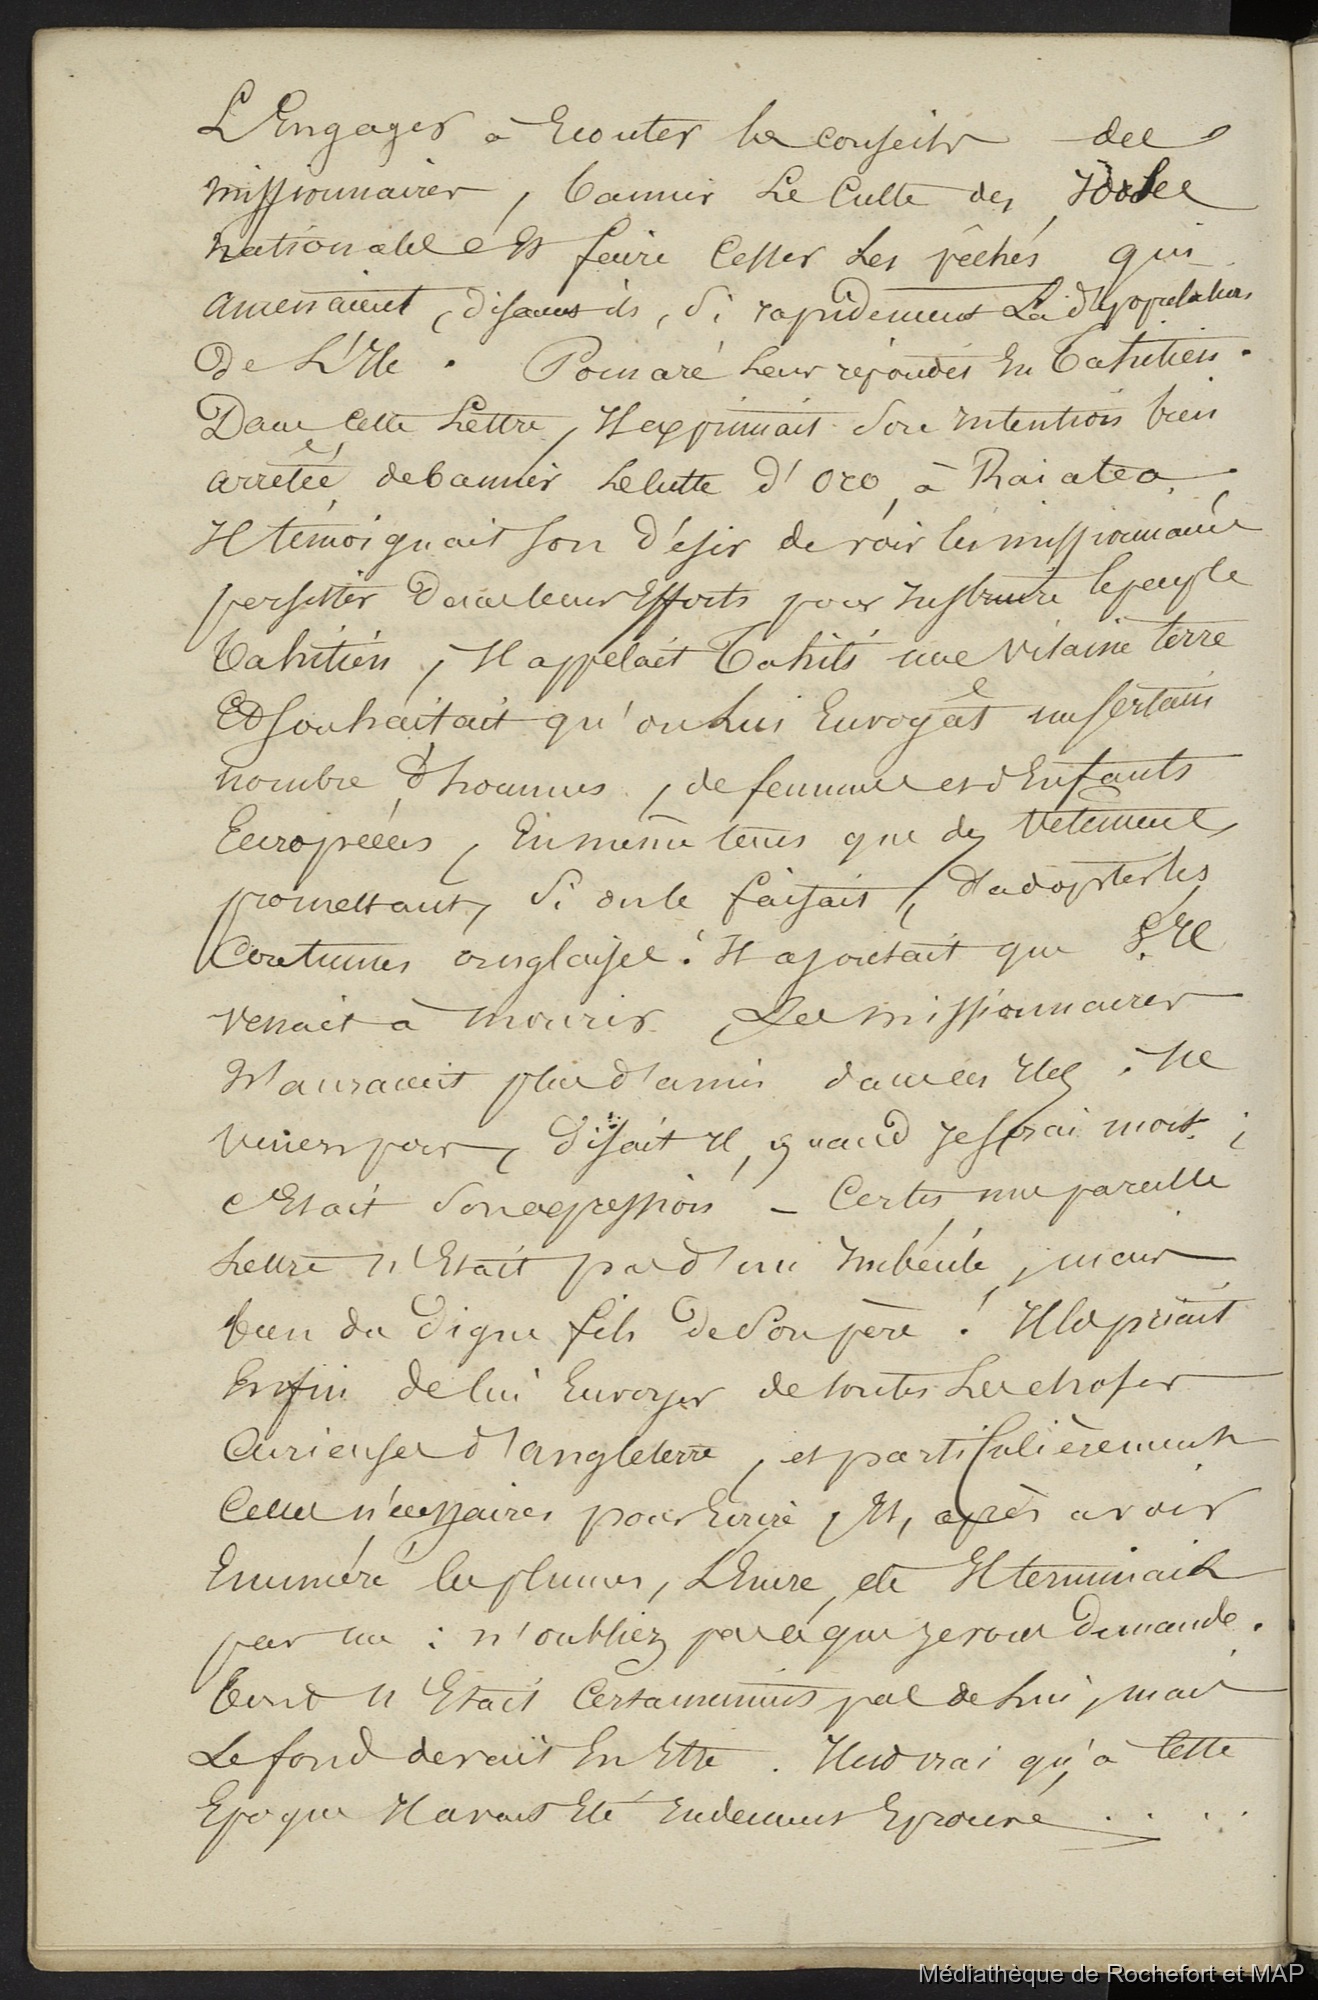 L'Engager à Ecouter les conseils des
missionnaires, bannir Le Culte des Idoles
nationales Et faire Cesser Les péchés qui
amenaient, disaient ils, Si rapidement La dépopulation
De L'Ile. Pomaré Leur répondit En Tahitien.
Dans Cette Lettre, Il exprimait Son intention bien
arrêtée de bannir le culte d'Oro, à Raiatea.
Il témoignait Son Désir de voir les missionnaires
persister Dans leurs Efforts pour Instruire le peuple
Tahitien, Il appelait Tahiti une vilaine terre
Et Souhaitait qu'on Lui Envoyât un certain
nombre d'hommes, de femmes et d'Enfants
Européens, En même tems que des Vetements
promettant, Si on le faisait, d'adopter les
Coutumes anglaises. Il ajoutait que S'Il
venait à mourir Les missionnaires
N'auraient plus d'amis dans les Iles. Ne
venez pas, disait Il, quand Je serai mort;
c'Etait Son expression - Certes, une pareille
Lettre n'Etait pas d'un Imbécile, mais
bien du Digne fils De Son père! Il les priait
Enfin de lui Envoyer de toutes Les choses
Curieuses d'angleterre, et particulièrement
Celles nécessaires pour Ecrire, Et, après avoir
Enuméré les plumes, L'Encre, etc Il terminait
par un : n'oubliez pas ce que je vous Demande.
Tout n'Etait Certainement pas de Lui, mais
Le fond devait En Etre. Il est vrai qu'à Cette
Epoque Il avait Eté rudement Eprouvé . . . .
Médiathèque de Rochefort et MAP